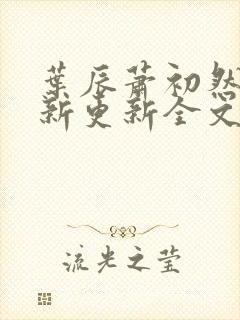 葉辰蕭初然
新更新全文
流光之莹